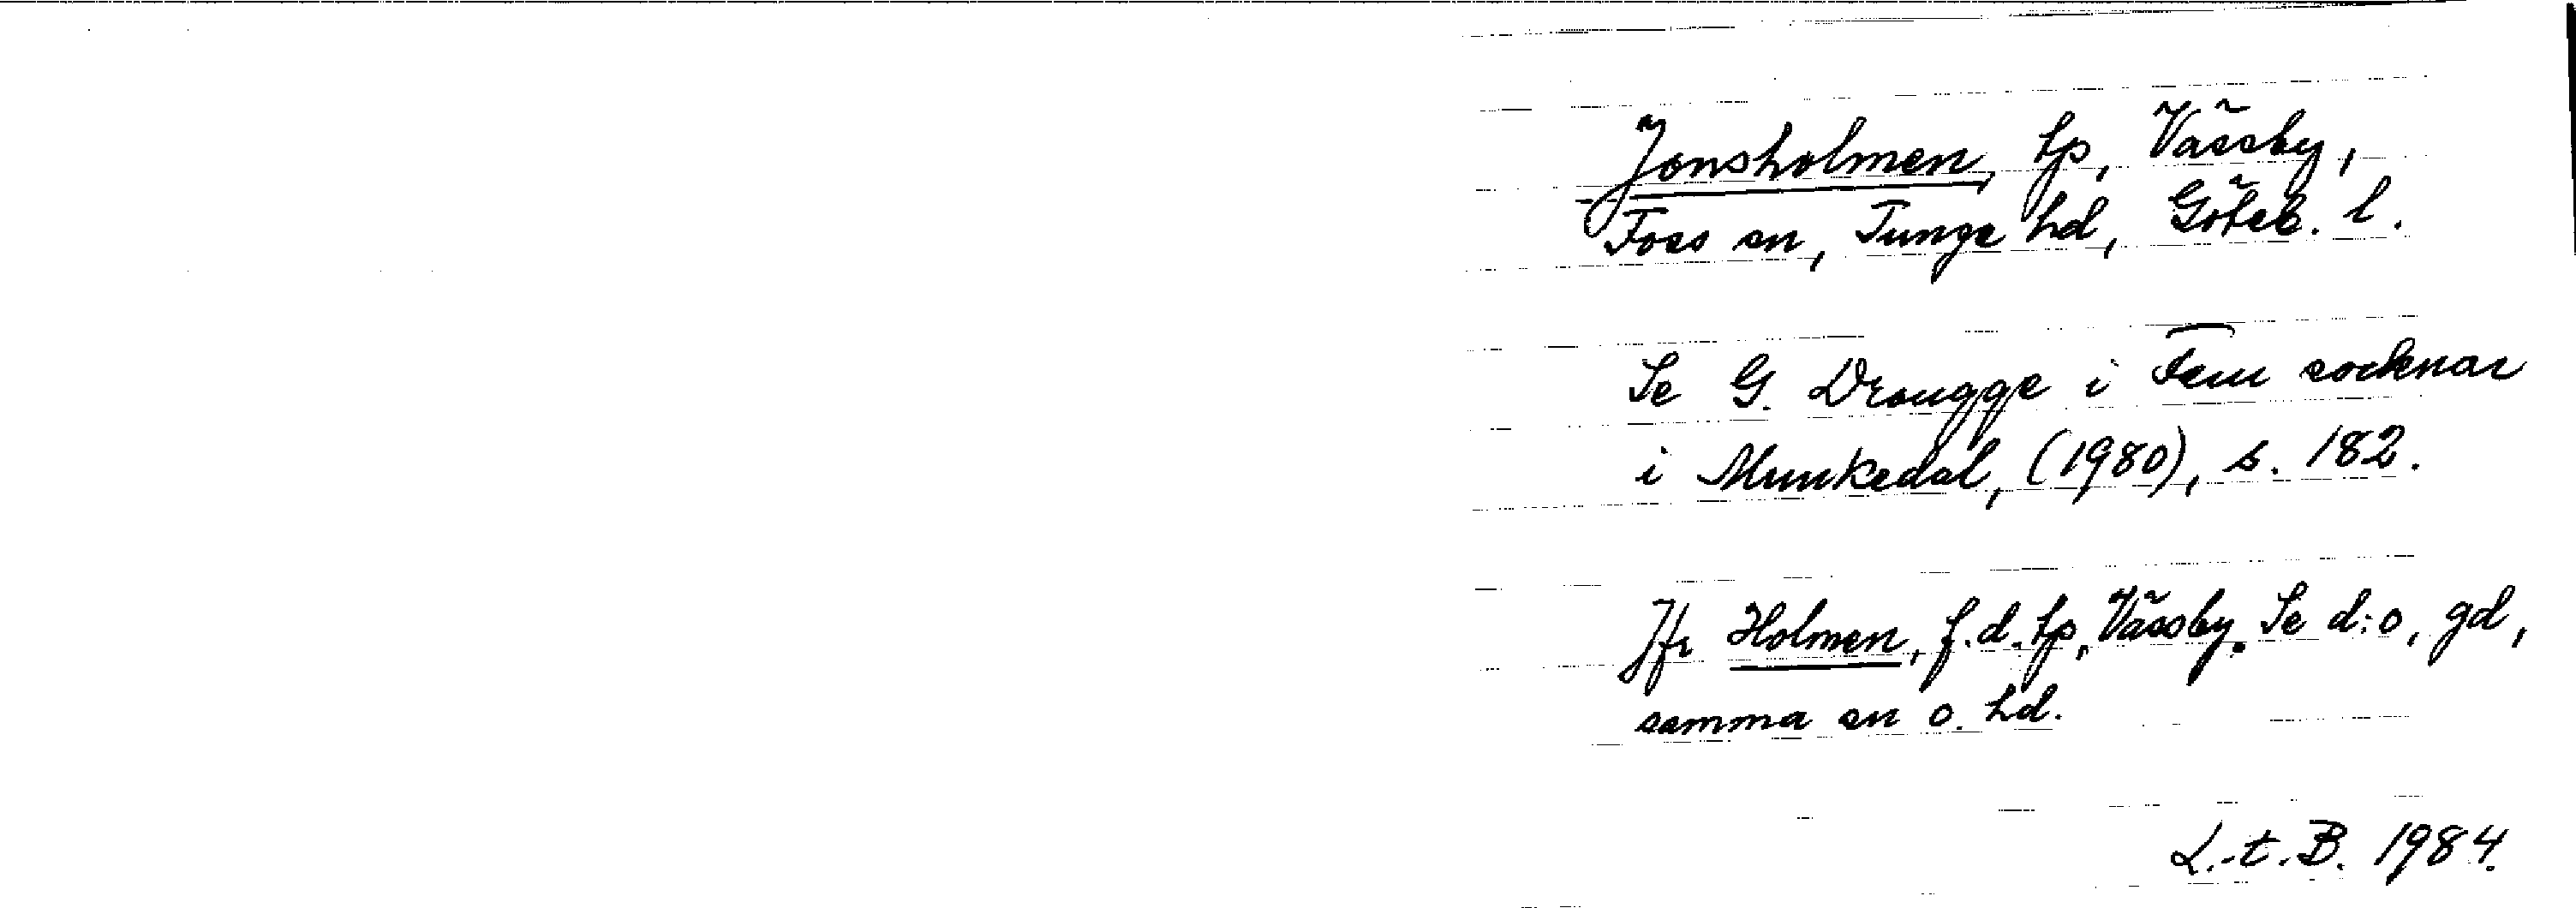 Jonsholmen, tp, Vässby,
Foss sn, Tunge hd, Göteb. l.
Se G. Drougge i Fem socknar
i Munkedal, (1980), s. 182.
Jfr Holmen, f.d. tp, Vässby. Se d:o, gd,
samma sn o. hd.
L.-t.B. 1984.